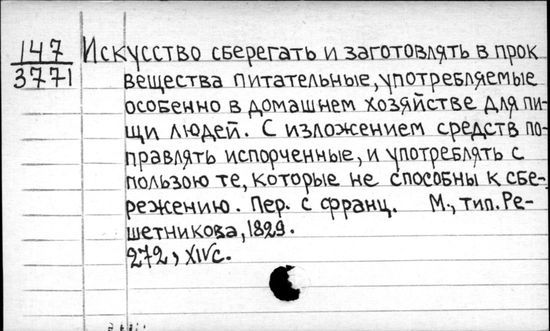 147
3771
Искусство сберегать и заготовлять в прок
вещества питательные, употребляемые
особенно в домашнем хозяйстве для пи-
щи людей. С изложением средств по-
правлять испорченные, и употреблять с
пользою те, которые не способны к сбе-
режению. Пер. с франц. М., тип. Ре-
шетникова, 1829.
272, XIV с.